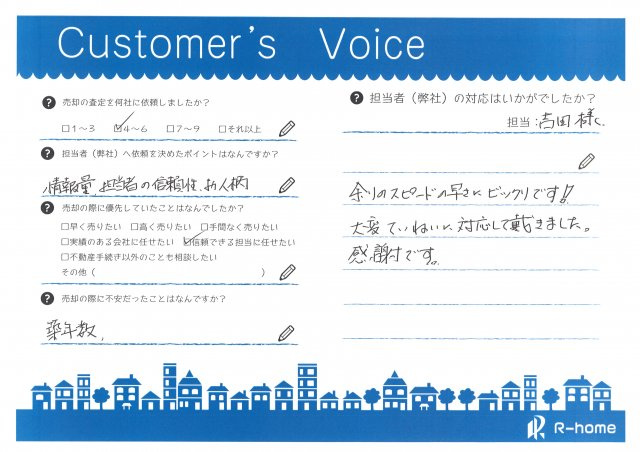 Customer's Voice
? 売却の査定を何社に依頼しましたか？
□1～3 ☑4～6 □7～9 □それ以上
? 担当者（弊社）へ依頼を決めたポイントはなんですか？
情報量、担当者の信頼性、お人柄
? 売却の際に優先していたことはなんでしたか？
□早く売りたい □高く売りたい □手間なく売りたい
□実績のある会社に任せたい ☑信頼できる担当に任せたい
□不動産手続き以外のことも相談したい
その他（ ）
? 売却の際に不安だったことはなんですか？
築年数、
? 担当者（弊社）の対応はいかがでしたか？
担当：吉田様
余りのスピードの早さにビックリです!!
大変ていねいに対応して戴きました。
感謝です。
R-home